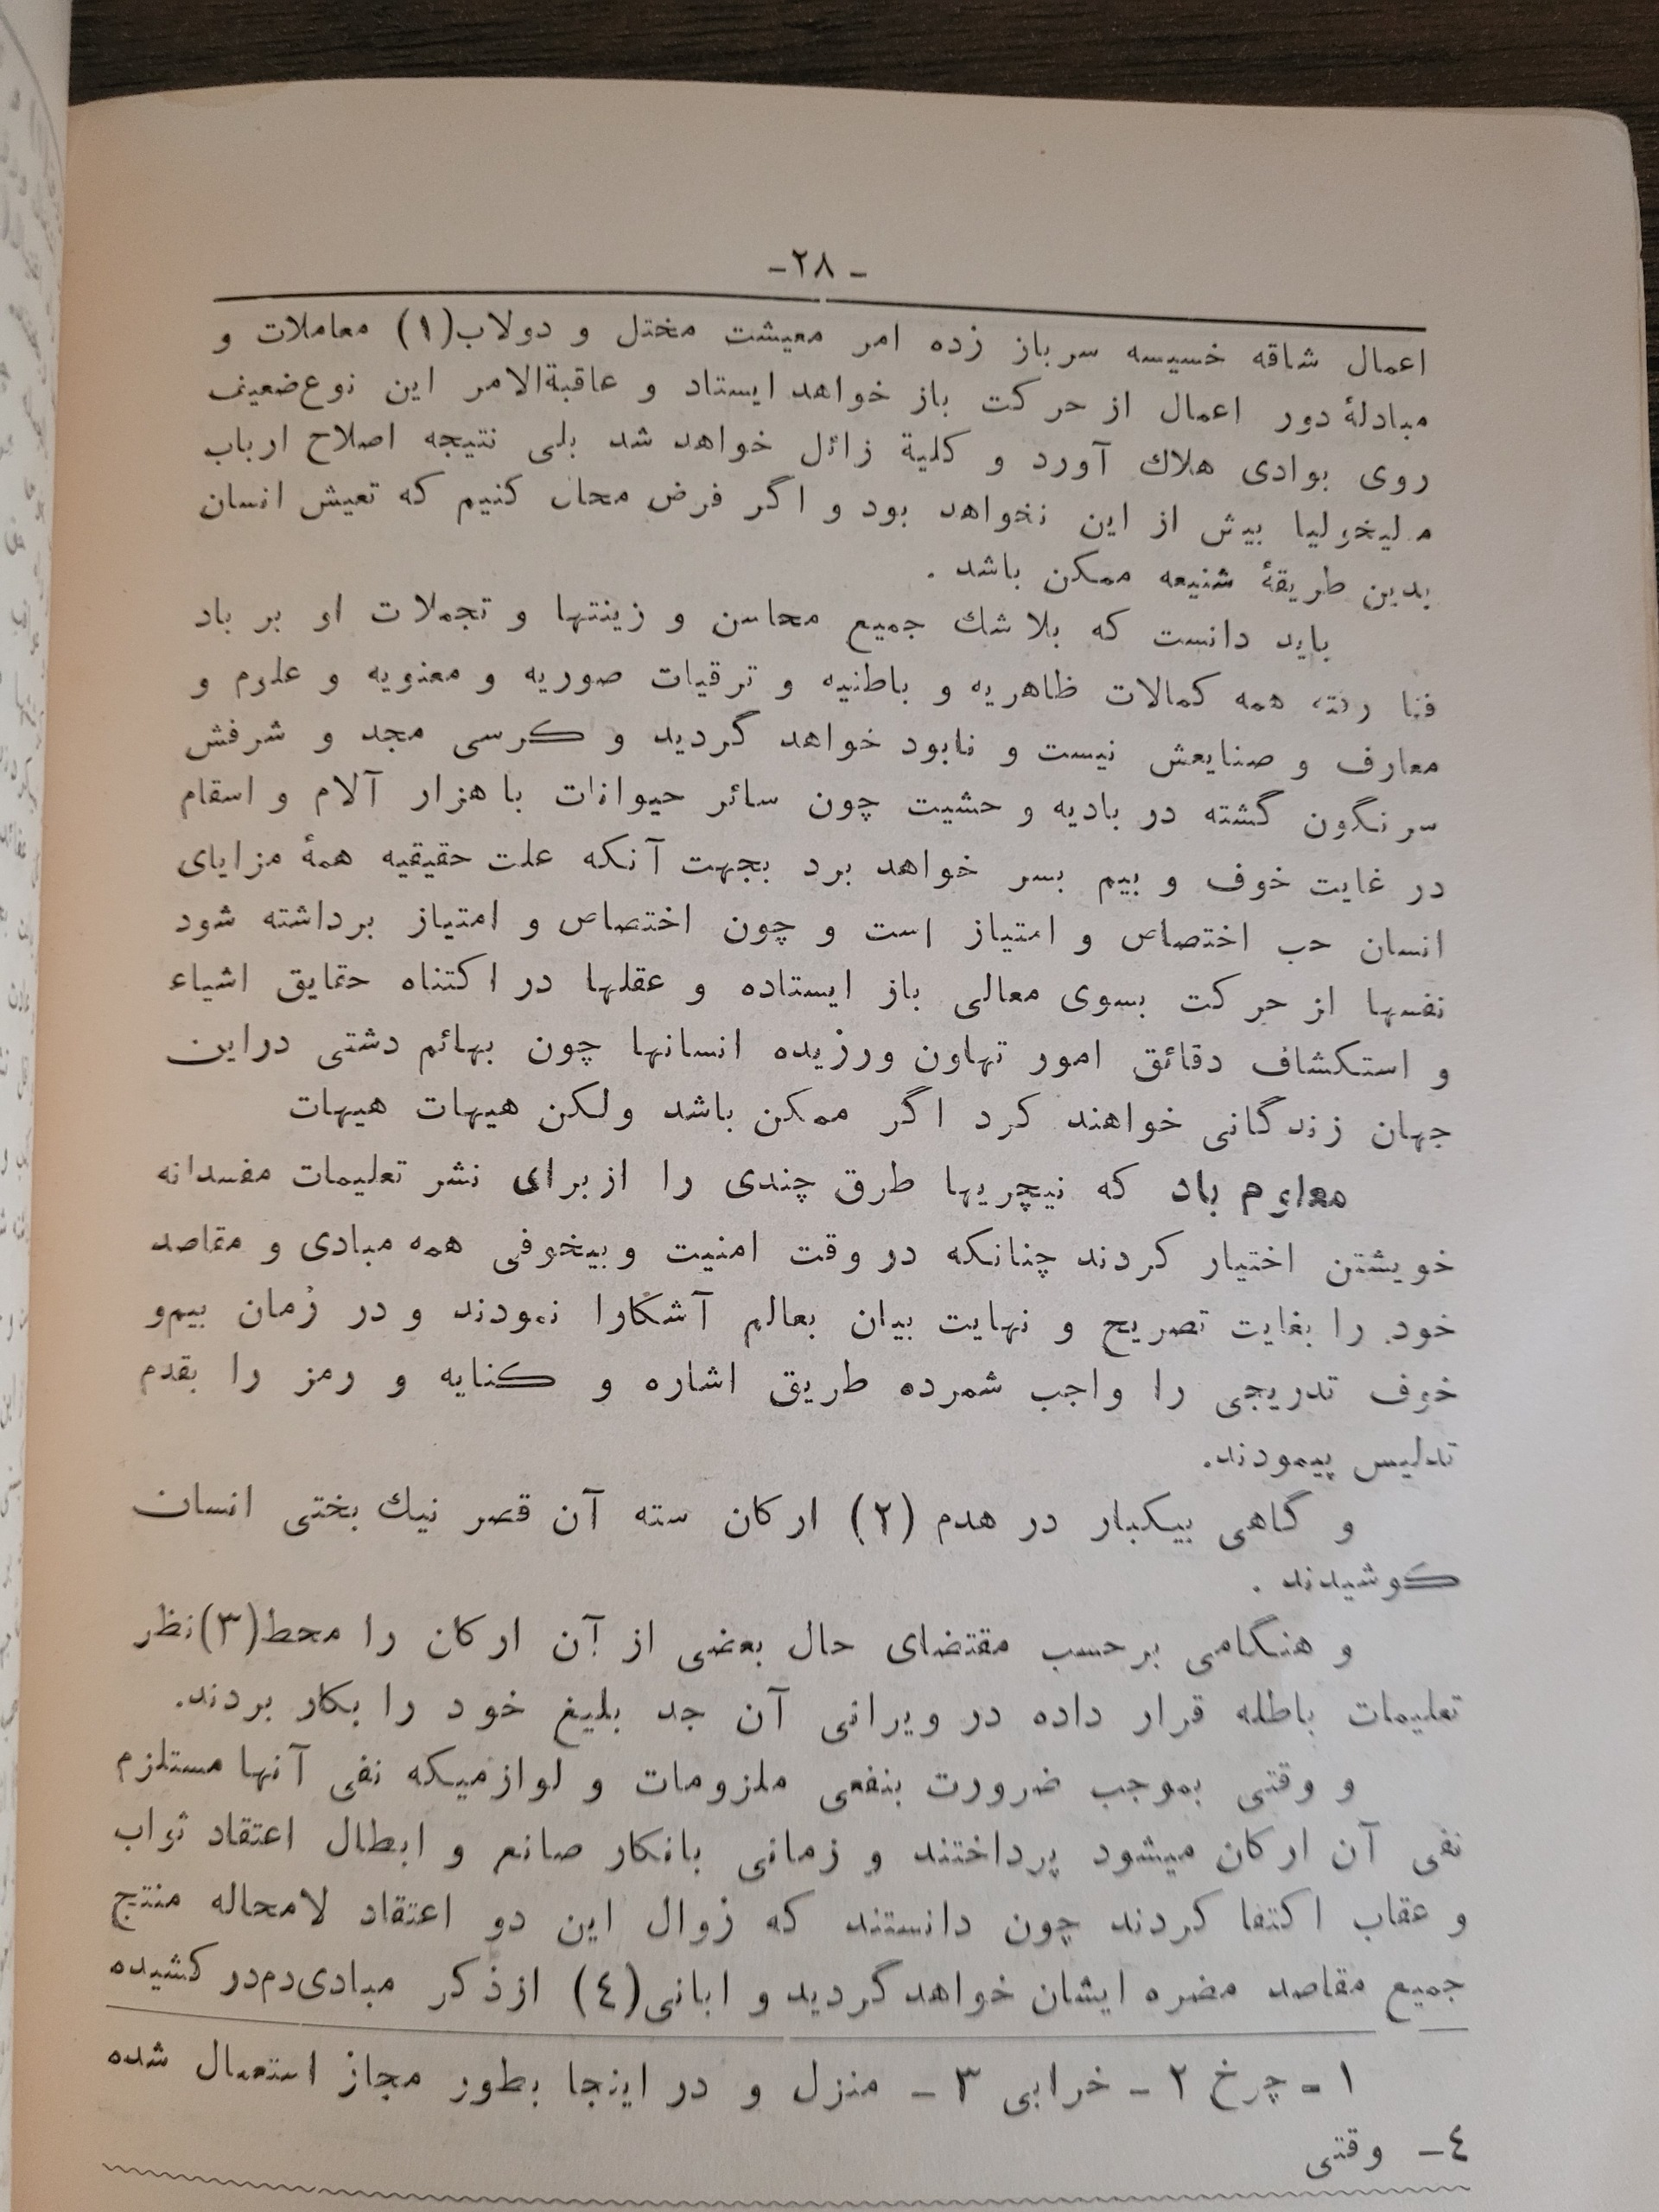 - ۲۸-
اعمال شاقه خسیسه سرباز زده امر معیشت مختل و دولاب(۱) معاملات و
مبادلهٔ دور اعمال از حرکت باز خواهد ایستاد و عاقبةالامر این نوع ضعیف
روی بوادی هلاك آورد و کلیة زائل خواهد شد بلی نتیجه اصلاح ارباب
مالیخولیا بیش از این نخواهد بود و اگر فرض محال کنیم که تعیش انسان
بدین طریقهٔ شنیعه ممکن باشد .
باید دانست که بلاشك جمیع محاسن و زینتها و تجملات او بر باد
فنا رفته همه کمالات ظاهریه و باطنیه و ترقیات صوریه و معنویه و علوم و
معارف و صنایعش نیست و نابود خواهد گردید و کرسی مجد و شرفش
سرنگون گشته در بادیه وحشیت چون سائر حیوانات با هزار آلام و اسقام
در غایت خوف و بیم بسر خواهد برد بجهت آنکه علت حقیقیه همهٔ مزایای
انسان حب اختصاص و امتیاز است و چون اختصاص و امتیاز برداشته شود
نفسها از حرکت بسوی معالی باز ایستاده و عقلها در اکتناه حقایق اشیاء
و استکشاف دقائق امور تهاون ورزیده انسانها چون بهائم دشتی دراین
جهان زندگانی خواهند کرد اگر ممکن باشد ولکن هیهات هیهات
معلوم باد که نیچریها طرق چندی را ازبرای نشر تعلیمات مفسدانه
خویشتن اختیار کردند چنانکه در وقت امنیت و بیخوفی همه مبادی و مقاصد
خود را بغایت تصریح و نهایت بیان بعالم آشکارا نمودند و در زمان بیم‌و
خوف تدریجی را واجب شمرده طریق اشاره و کنایه و رمز را بقدم
تدلیس پیمودند.
و گاهی بیکبار در هدم (۲) ارکان سته آن قصر نیك بختی انسان
کوشیدند .
و هنگامی برحسب مقتضای حال بعضی از آن ارکان را محط(۳)نظر
تعلیمات باطله قرار داده در ویرانی آن جد بلیغ خود را بکار بردند.
و وقتی بموجب ضرورت بنفعی ملزومات و لوازمیکه نفی آنها مستلزم
نفی آن ارکان میشود پرداختند و زمانی بانکار صانع و ابطال اعتقاد ثواب
و عقاب اکتفا کردند چون دانستند که زوال این دو اعتقاد لامحاله منتج
جمیع مقاصد مضره ایشان خواهد گردید و ابانی(٤) ازذکر مبادی‌دم‌در کشیده
۱ - چرخ ۲ - خرابی ۳ - منزل و در اینجا بطور مجاز استعمال شده
٤- وقتی